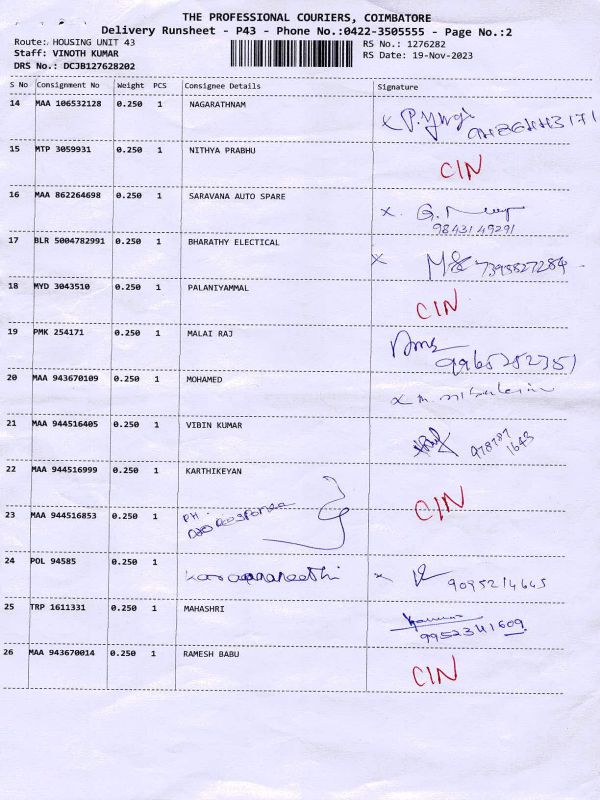 THE PROFESSIONAL COURIERS, COIMBATORE
Delivery Runsheet - P43 - Phone No.:0422-3505555 - Page No.:2
Route: HOUSING UNIT 43 RS No.: 1276282
Staff: VINOTH KUMAR RS Date: 19-Nov-2023
DRS No.: DCJB127628202
S No Consignment No Weight PCS Consignee Details Signature
14 MAA 106532128 0.250 1 NAGARATHNAM
15 MTP 3059931 0.250 1 NITHYA PRABHU CIN
16 MAA 862264698 0.250 1 SARAVANA AUTO SPARE
9843149291
17 BLR 5004782991 0.250 1 BHARATHY ELECTICAL
18 MYD 3043510 0.250 1 PALANIYAMMAL CIN
19 PMK 254171 0.250 1 MALAI RAJ
9965252351
20 MAA 943670109 0.250 1 MOHAMED
21 MAA 944516405 0.250 1 VIBIN KUMAR
22 MAA 944516999 0.250 1 KARTHIKEYAN CIN
23 MAA 944516853 0.250 1
24 POL 94585 0.250 1 9095214645
25 TRP 1611331 0.250 1 MAHASHRI
9952341609
26 MAA 943670014 0.250 1 RAMESH BABU CIN